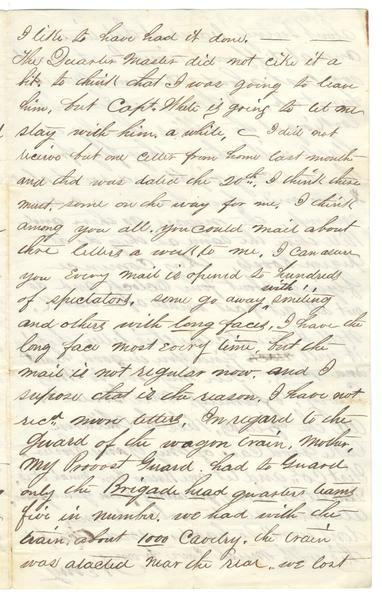 I like to have had it done. ——
The Quarter Master did not like it a
bit. to think that I was going to leave
him, but Capt. White is going to let me
stay with him. a while, I did not
receive but one letter from home last month
and that was dated the 20th. I think there
must, some on the way for me. I think
among you all. you could mail about
three letters a week to me. I can assure
you Every mail is opened to hundreds
of spectators, some go away with smiling
and others with long faces, I have the
long face most every time, but the
mail is not regular now. and I
supose that is the reason, I have not
recd more letters, In regard to the
Guard of the wagon train, Mother,
My Provost Guard. had to Guard
only the Brigade head quarters teams
five in number. we had with the
train, about 1000 Cavelry. the train
was atacted near the rear.. we lost